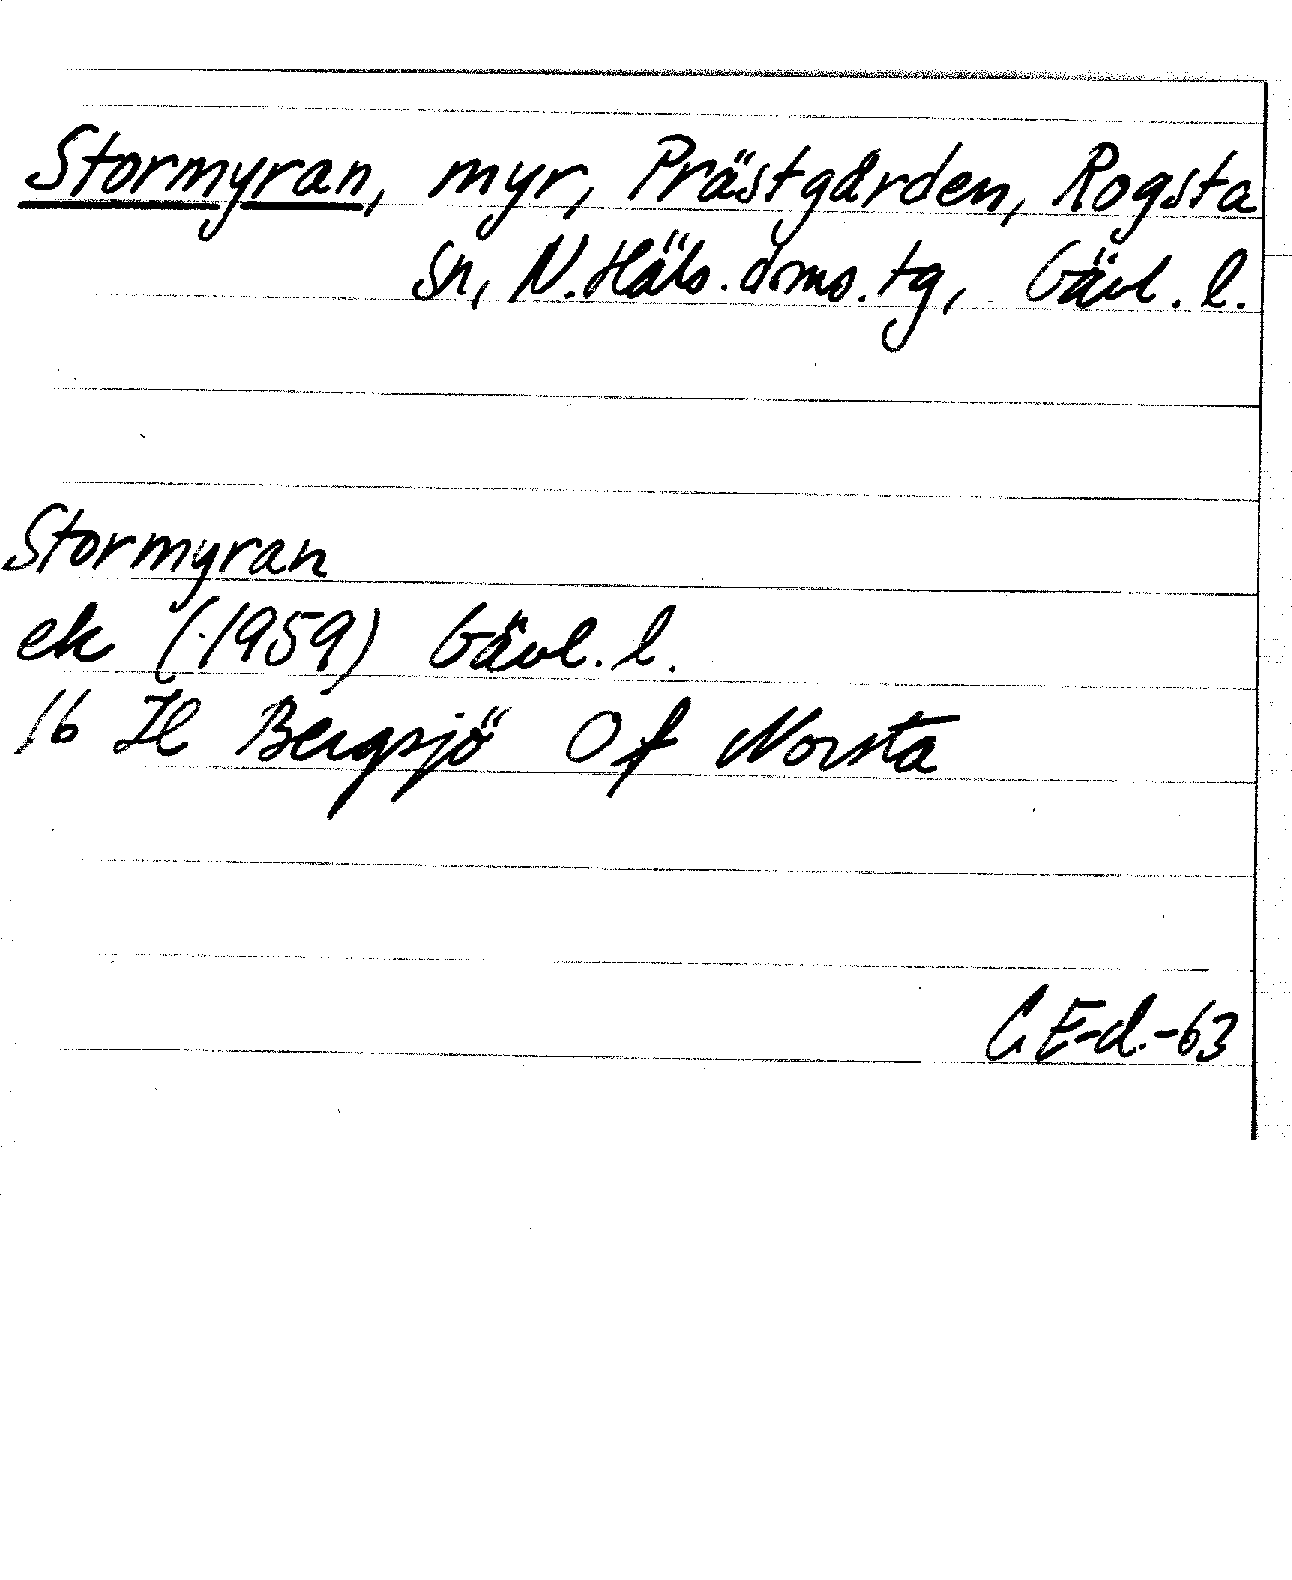 Stormyran, myr, Prästgården, Rogsta
sn, N.Häls.doms.tg, Gävl.l.
Stormyran
ek (1959) Gävl.l.
16 H Bergsjö Of Norsta
C.E-d.-63